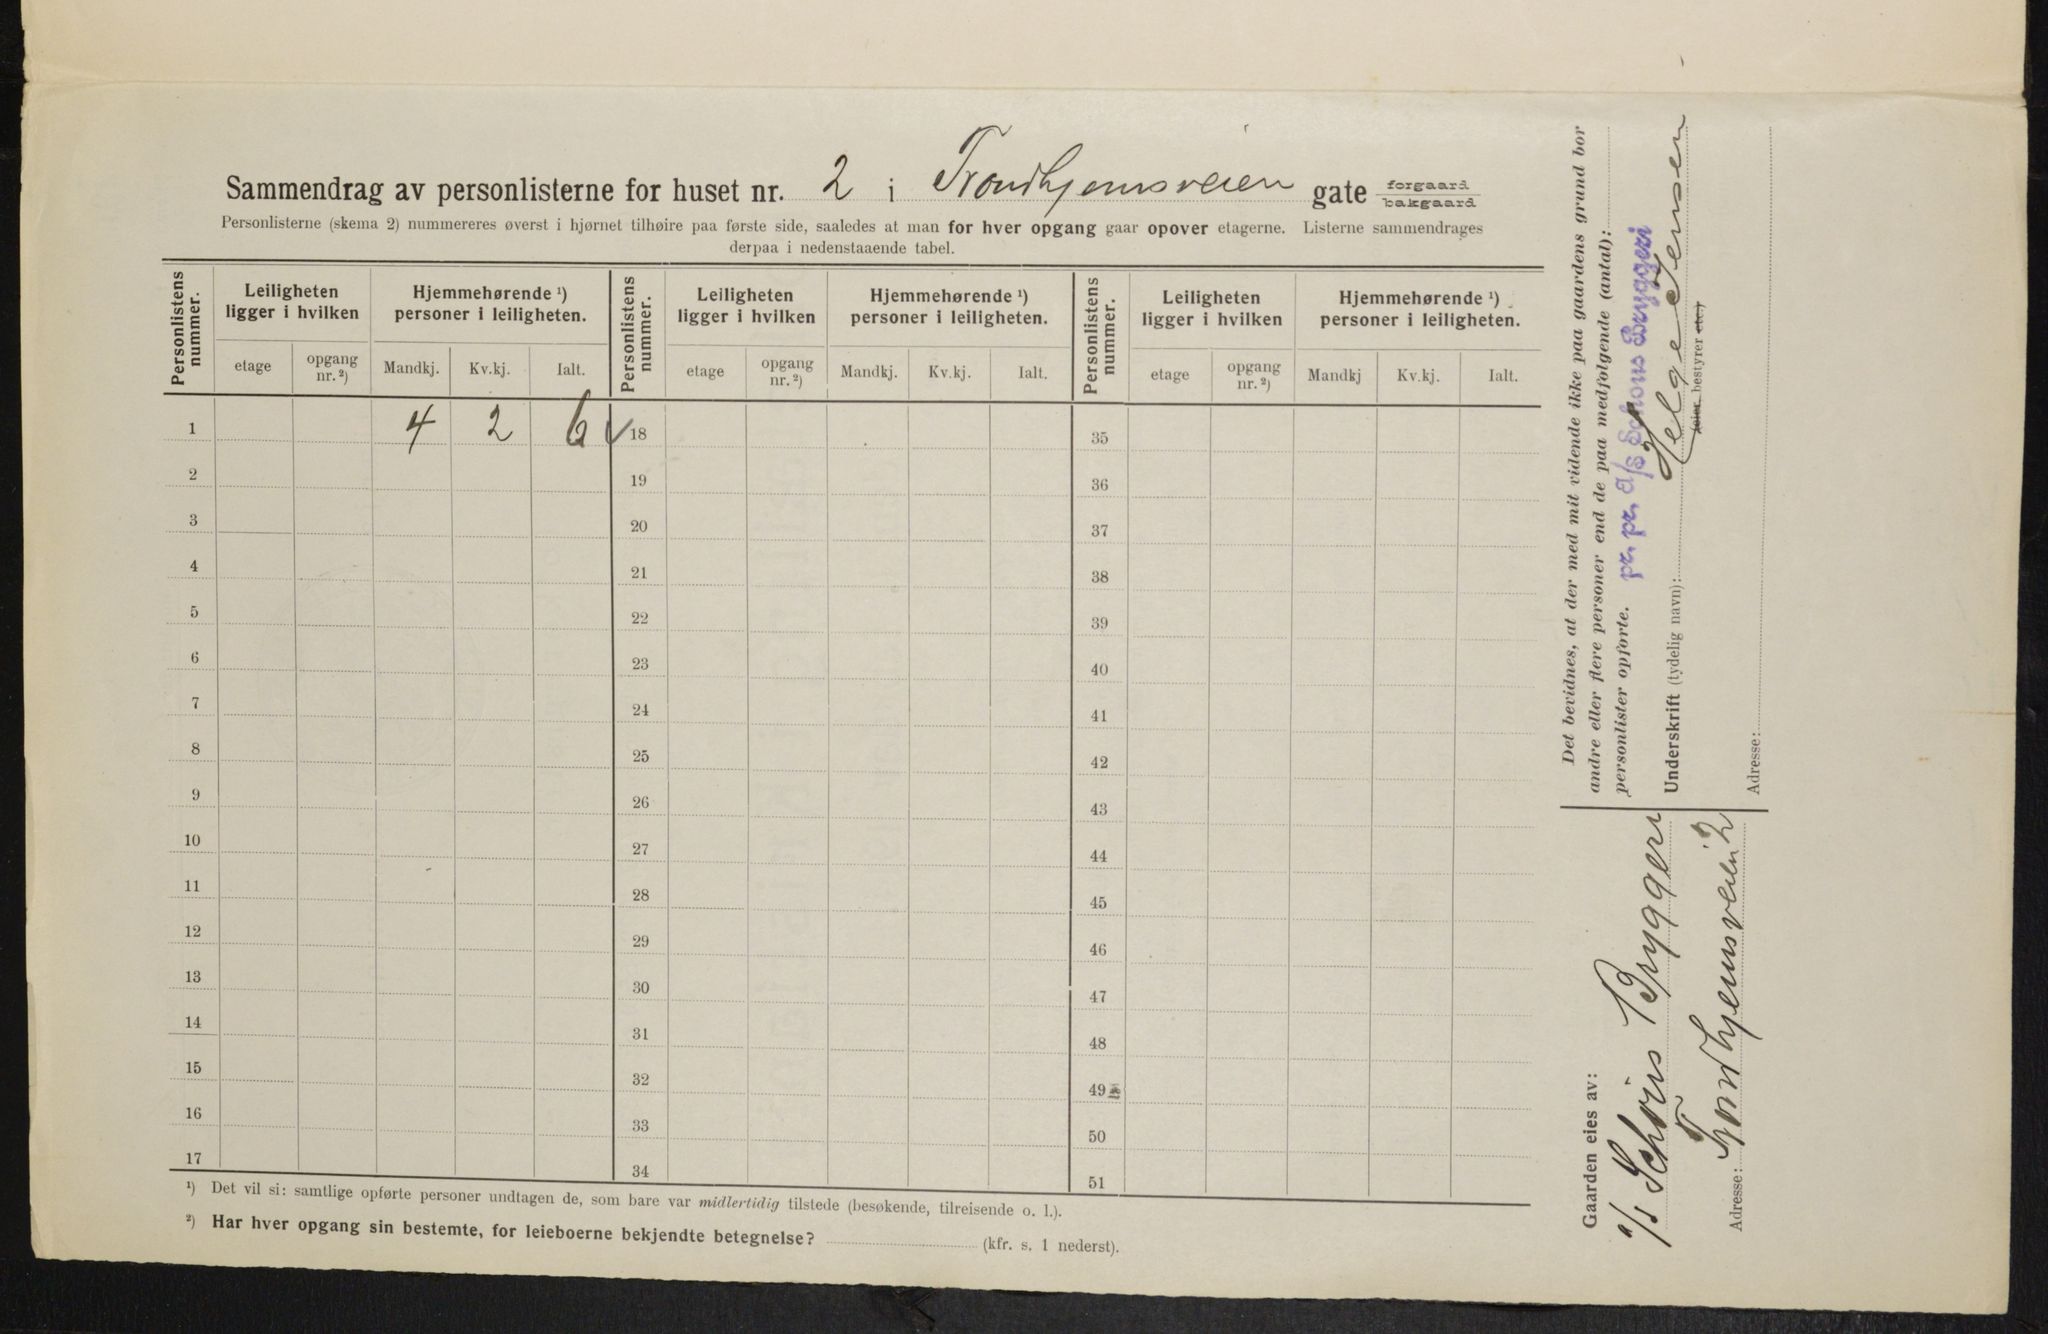 Sammendrag av personlisterne for huset nr. 2 i Trondhjemsveien gate forgaard bakgaard
Personlisterne (skema 2) nummereres øverst i hjørnet tilhøire paa første side, saaledes at man for hver opgang gaar opover etagerne. Listerne sammendrages
derpaa i nedenstaaende tabel.
Personlistens nummer. Leiligheten ligger i hvilken Hjemmehørende ¹) personer i leiligheten. Personlistens nummer. Leiligheten ligger i hvilken Hjemmehørende ¹) personer i leiligheten. Personlistens nummer. Leiligheten ligger i hvilken Hjemmehørende ¹) personer i leiligheten.
etage opgang nr. ²) Mandkj. Kv.kj. Ialt. etage opgang nr. ²) Mandkj. Kv.kj. Ialt. etage opgang nr. ²) Mandkj Kv.kj. Ialt.
1 4 2 6 ✓ 18 35
2 19 36
3 20 37
4 21 38
5 22 39
6 23 40
7 24 41
8 25 42
9 26 43
10 27 44
11 28 45
12 29 46
13 30 47
14 31 48
15 32 49
16 33 50
17 34 51
¹) Det vil si: samtlige opførte personer undtagen de, som bare var midlertidig tilstede (besøkende, tilreisende o. l.).
²) Har hver opgang sin bestemte, for leieboerne bekjendte betegnelse? (kfr. s. 1 nederst).
Det bevidnes, at der med mit vidende ikke paa gaardens grund bor
andre eller flere personer end de paa medfølgende (antal):
personlister opførte. pr. pr. A/S Schous Bryggeri
Underskrift (tydelig navn): Helge Jensen
(eier, bestyrer etc.)
Adresse:
Gaarden eies av:
A/S Schous Bryggeri
Adresse: Trondhjemsveien 2